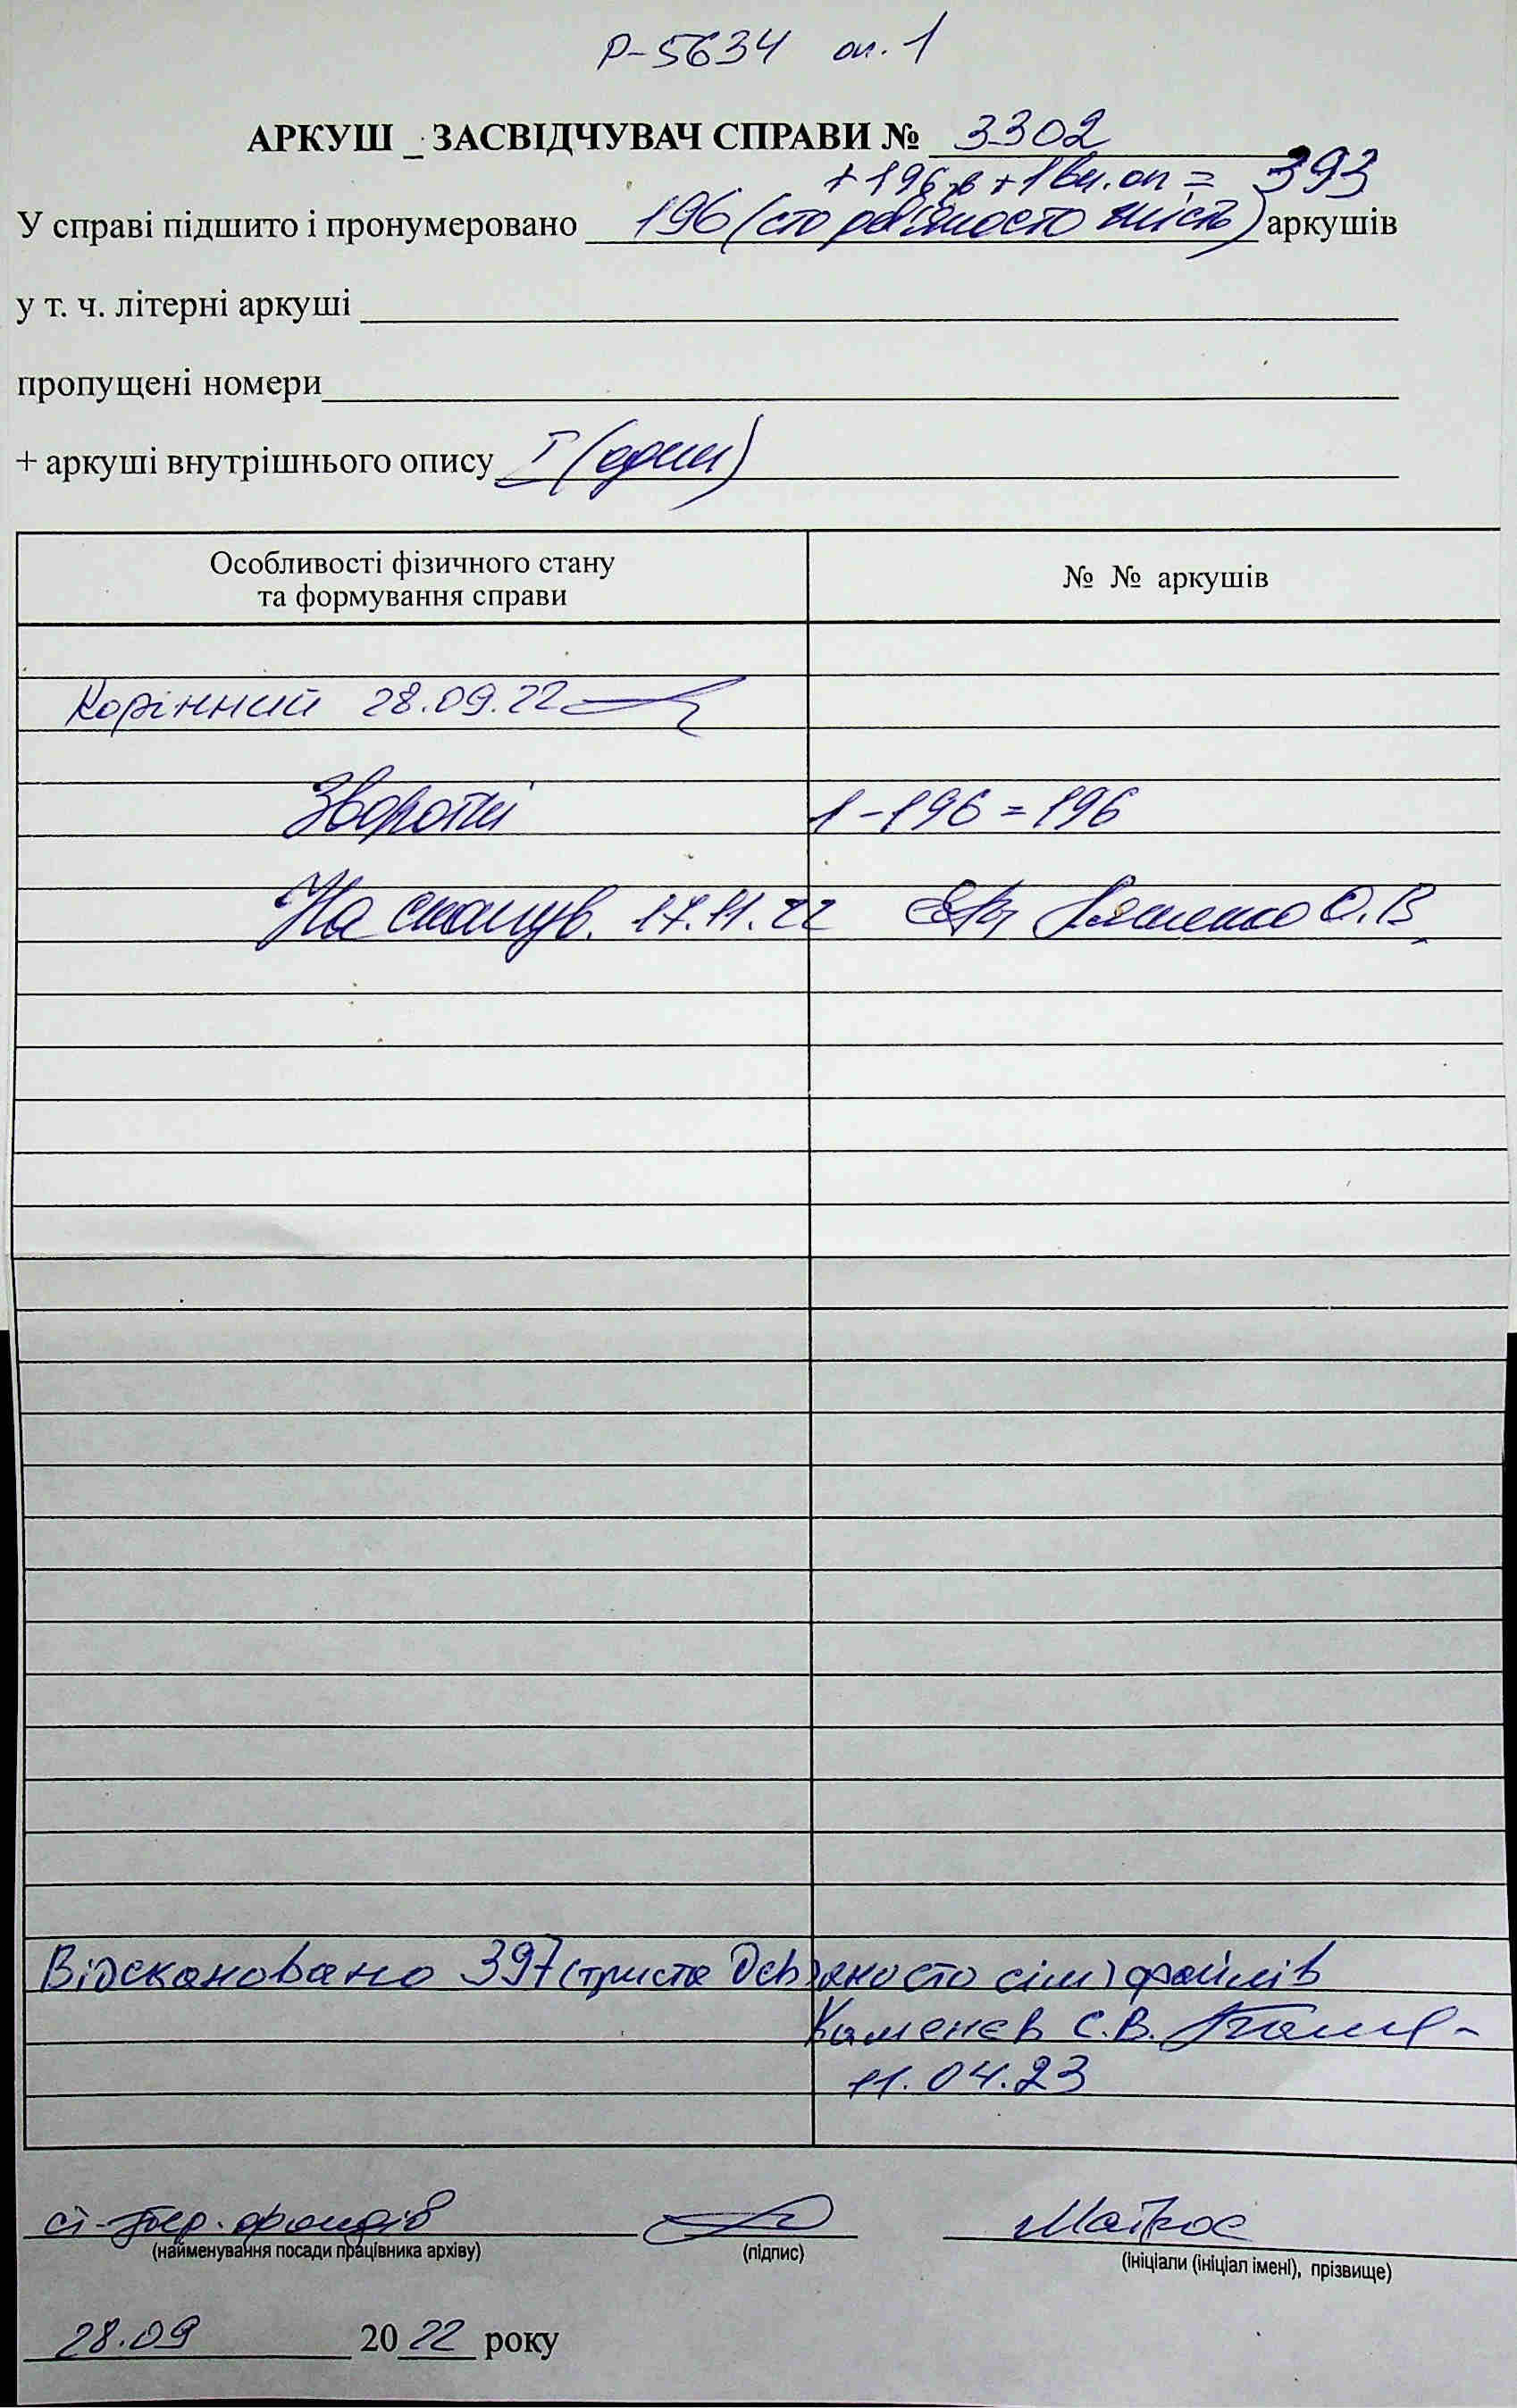 Р-5634 оп. 1
АРКУШ _ ЗАСВІДЧУВАЧ СПРАВИ № 3302
+ 196 зв + 1 вн. оп = 393
У справі підшито і пронумеровано 196 (сто дев'яносто шість) аркушів
у т. ч. літерні аркуші
пропущені номери
+ аркуші внутрішнього опису I (один)
Особливості фізичного стану
та формування справи
№ № аркушів
Корінний 28.09.22
Зворотні 1-196=196
На сканув. 17.11.22 О.В.
Відскановано 397 (триста дев'яносто сім) файлів
Каменєв С.В.
11.04.23
фондів
(найменування посади працівника архіву)
(підпис)
(ініціали (ініціал імені), прізвище)
28.09 2022 року